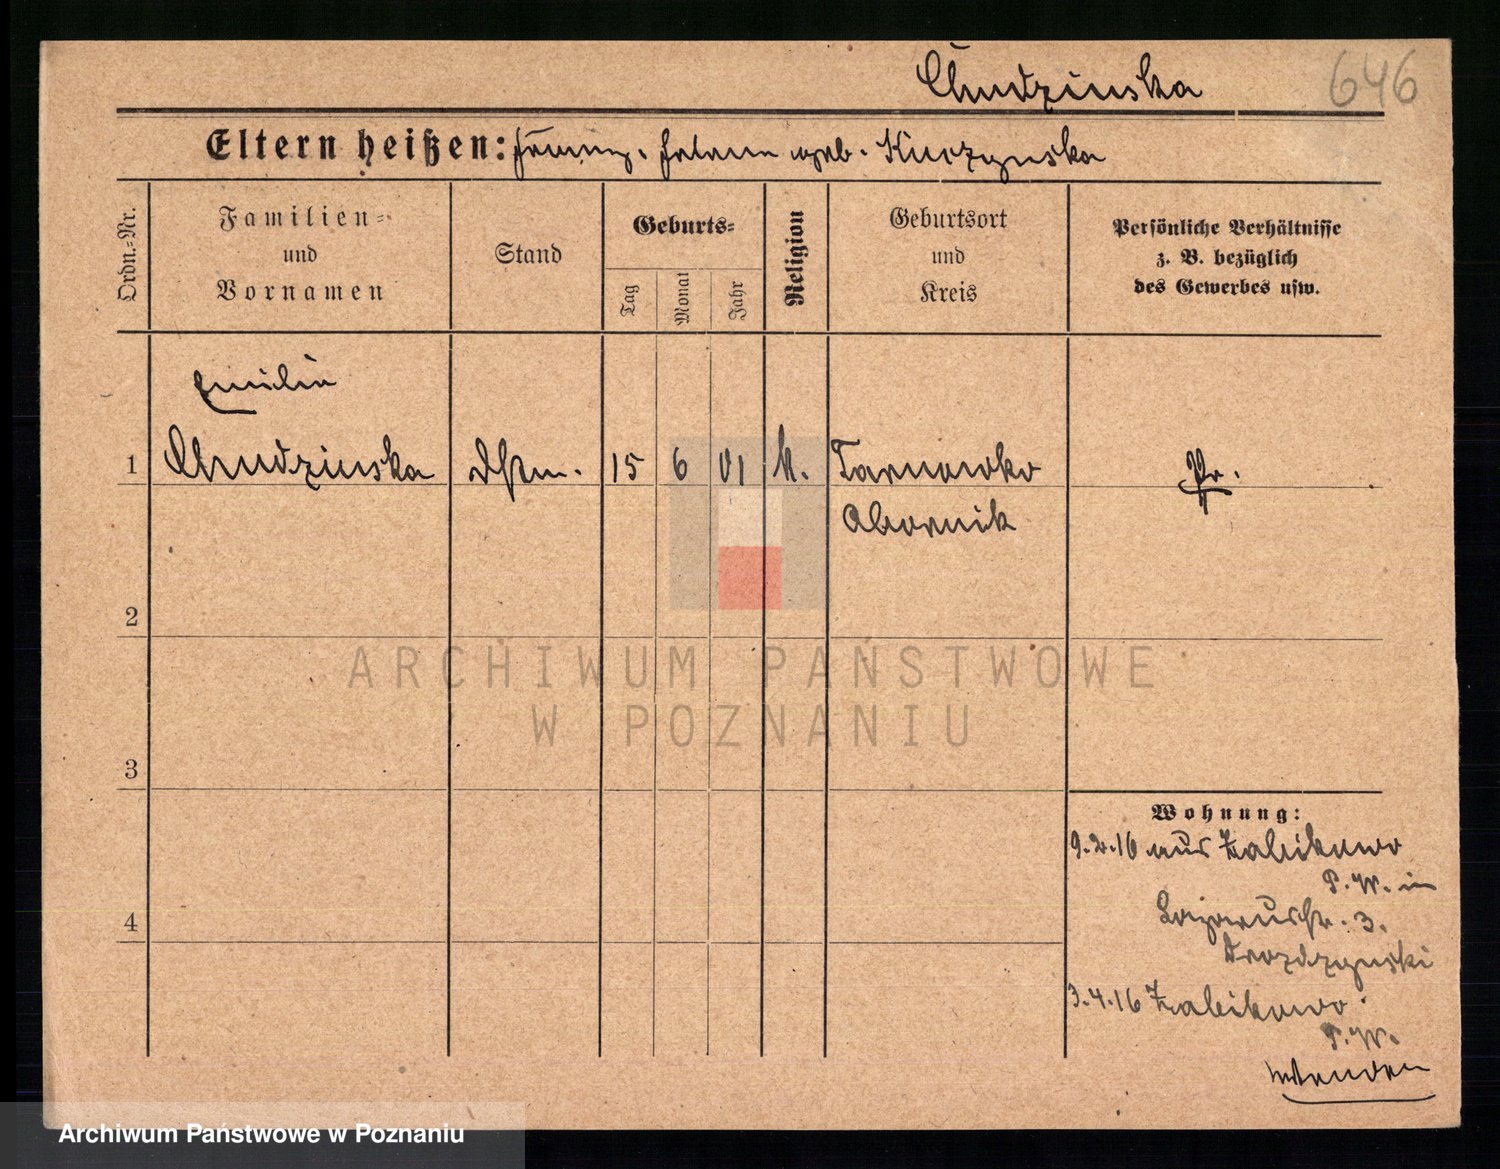 Chudzinska 646
Eltern heißen: Franz. Helene geb. Kuczynska
Ordn.-Nr.
Familien-
und
Vornamen
Stand
Geburts-
Tag
Monat
Jahr
Religion
Geburtsort
und
Kreis
Persönliche Verhältnisse
z. B. bezüglich
des Gewerbes usw.
Emilie
1 Chudzinska Dstm. 15 6 01 k. Tarnowko Pr.
Obornik
2
3
4
Wohnung:
9.2.16 aus Zabikowo
P.W. in
Lazarusstr. 3.
Drozdzynski
3.4.16 Zabikowo.
P.W.
wenden
ARCHIWUM PAŃSTWOWE
W POZNANIU
Archiwum Państwowe w Poznaniu